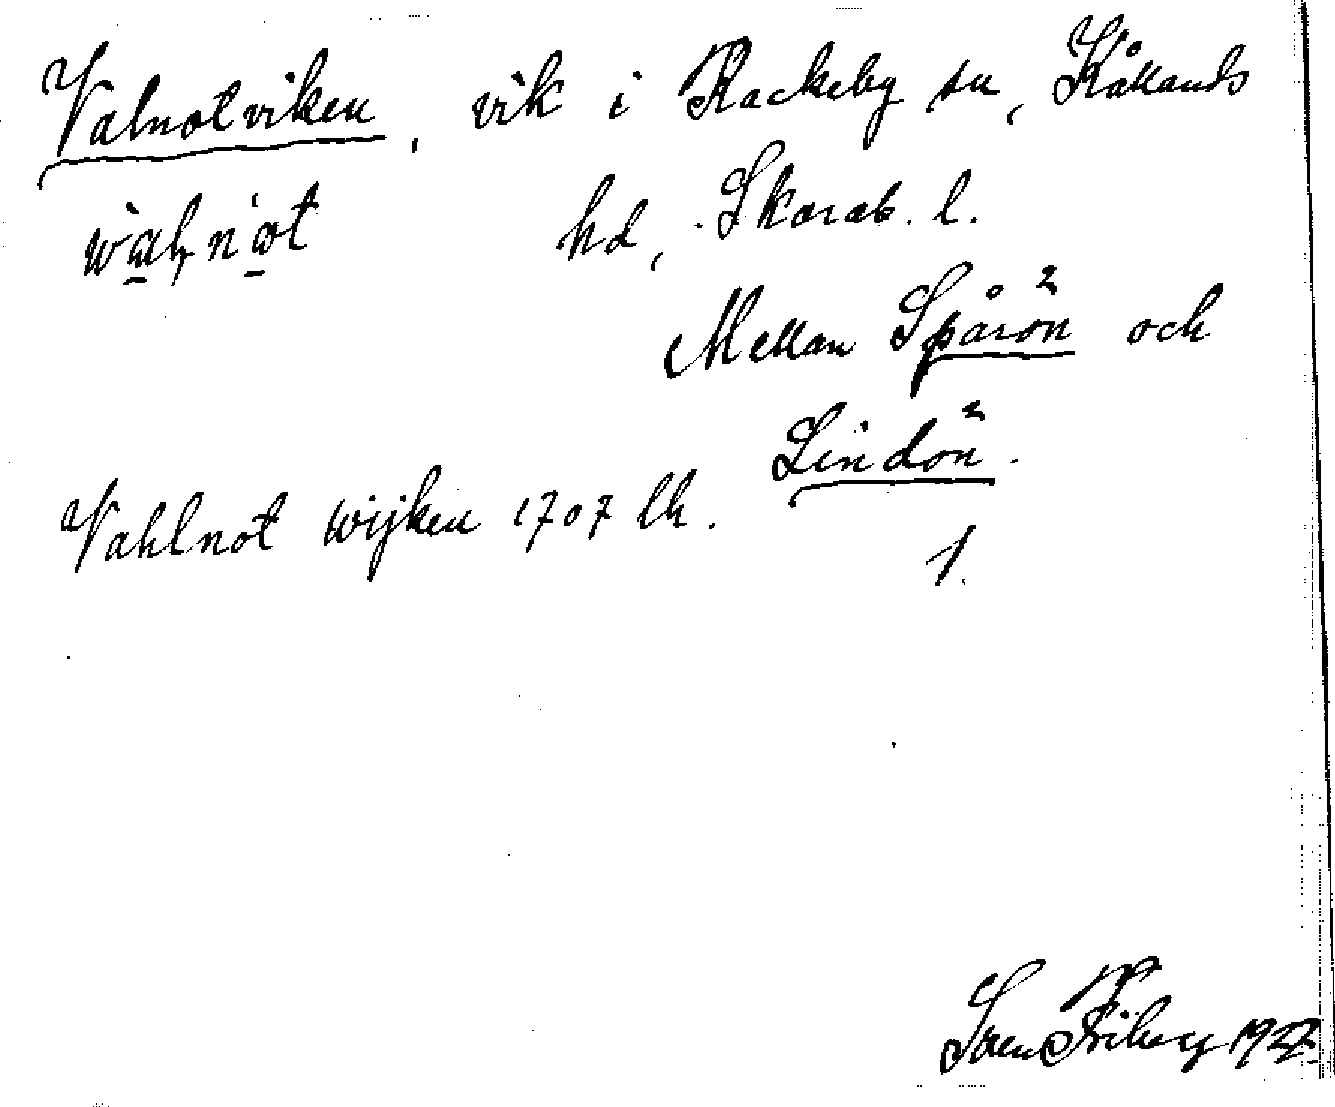 Valnotviken, vik i Rackeby sn, Kållands
hd, Skarab. l.
Mellan Spårön² och
Lindön².
Vahlnot wijken 1707 lk.
1.
Sven Friberg 1927